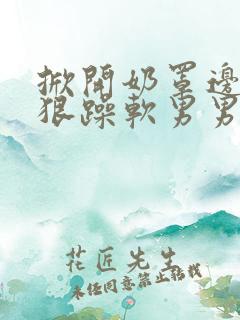 掀開奶罩邊
狠躁軟男男
花匠先生
未经同意禁止转载